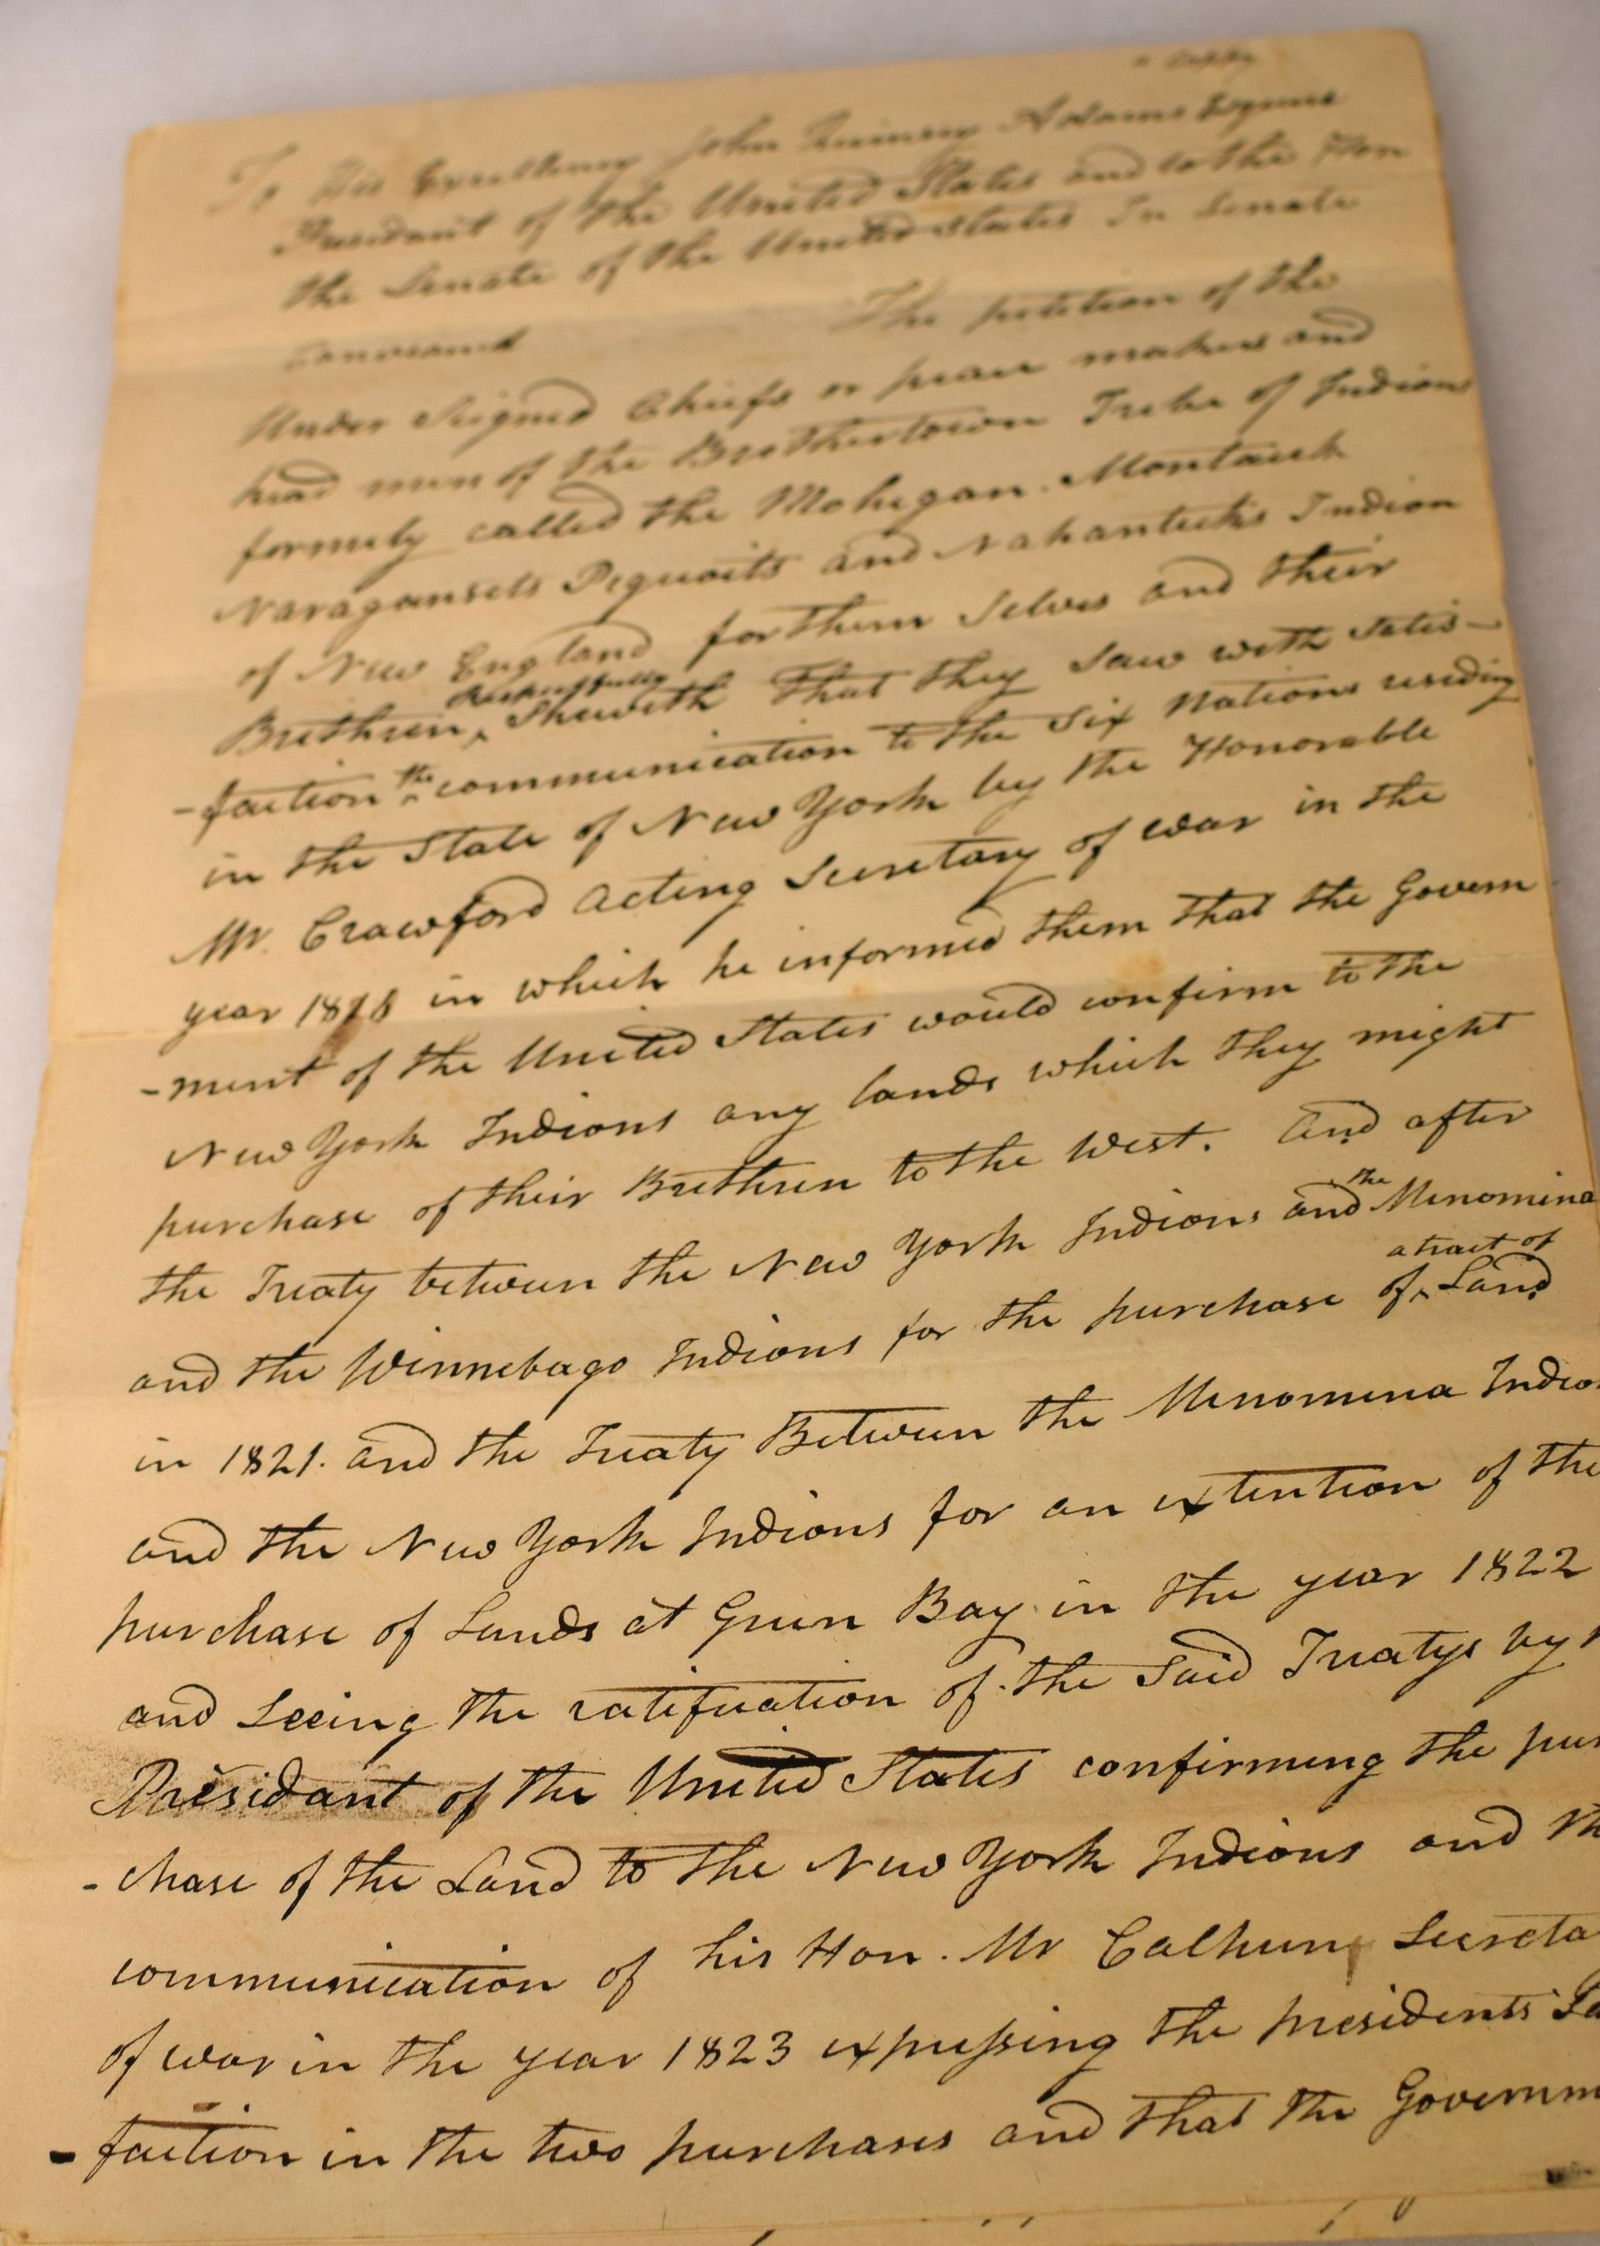 a Coppy
To His Excellency John Quincey Adams Esquire
Presidant of the United States and to the Hon
the Senate of the United States In Senate
convened The petition of the
Under Signed Chiefs or peace makers and
head men of the Brothertown Tribe of Indians
formely called the Mohegan. Montauck
Naragansets Pequoits and Nahanticks Indian
of New England for them Selves and their
Brethren, Respectfully Sheweth That they Saw with Satis-
-faction the communication to the Six Nations residing
in the State of New York by the Honorable
Mr. Crawford acting Secretary of war in the
year 1818 in which he informed them that the Govern
-ment of the United States would confirm to the
New York Indians any lands which they might
purchase of their Brethren to the West. And after
the Treaty between the New York Indians and the Menomina
and the Winnebago Indians for the purchase of a tract of Land
in 1821. and the Treaty Between the Menomina Indio
and the New York Indians for an extention of the
purchase of Lands at Green Bay in the year 1822
and Seeing the ratification of the Said Treatys by
Presidant of the United States confirming the pur
-chase of the Land to the New York Indians and th
communication of his Hon. Mr Calhun Secreta
of war in the year 1823 expressing the presidents Sa
-faction in the two purchases and that the Governm